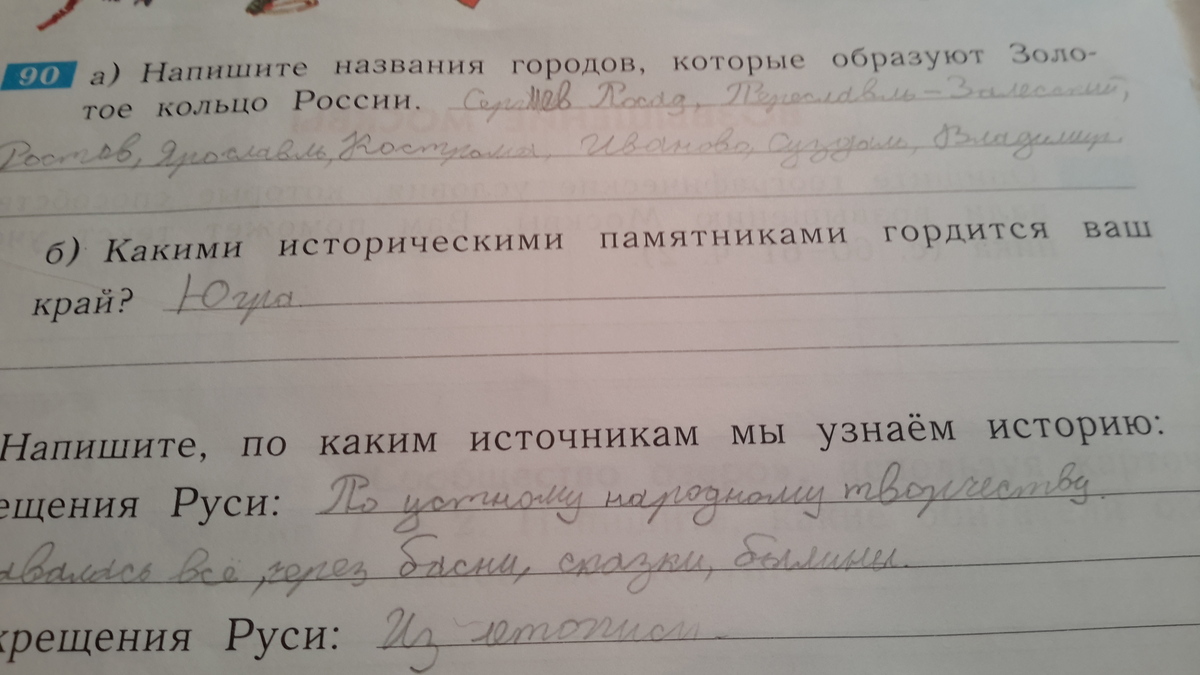 90 а) Напишите названия городов, которые образуют Золо-
тое кольцо России. Сергиев Посад, Переславль-Залесский,
Ростов, Ярославль, Кострома, Иваново, Суздаль, Владимир.
б) Какими историческими памятниками гордится ваш
край? Югра.
Напишите, по каким источникам мы узнаём историю:
ещения Руси: По устному народному творчеству.
авалась всё, через басни, сказки, былины.
крещения Руси: Из летописи.